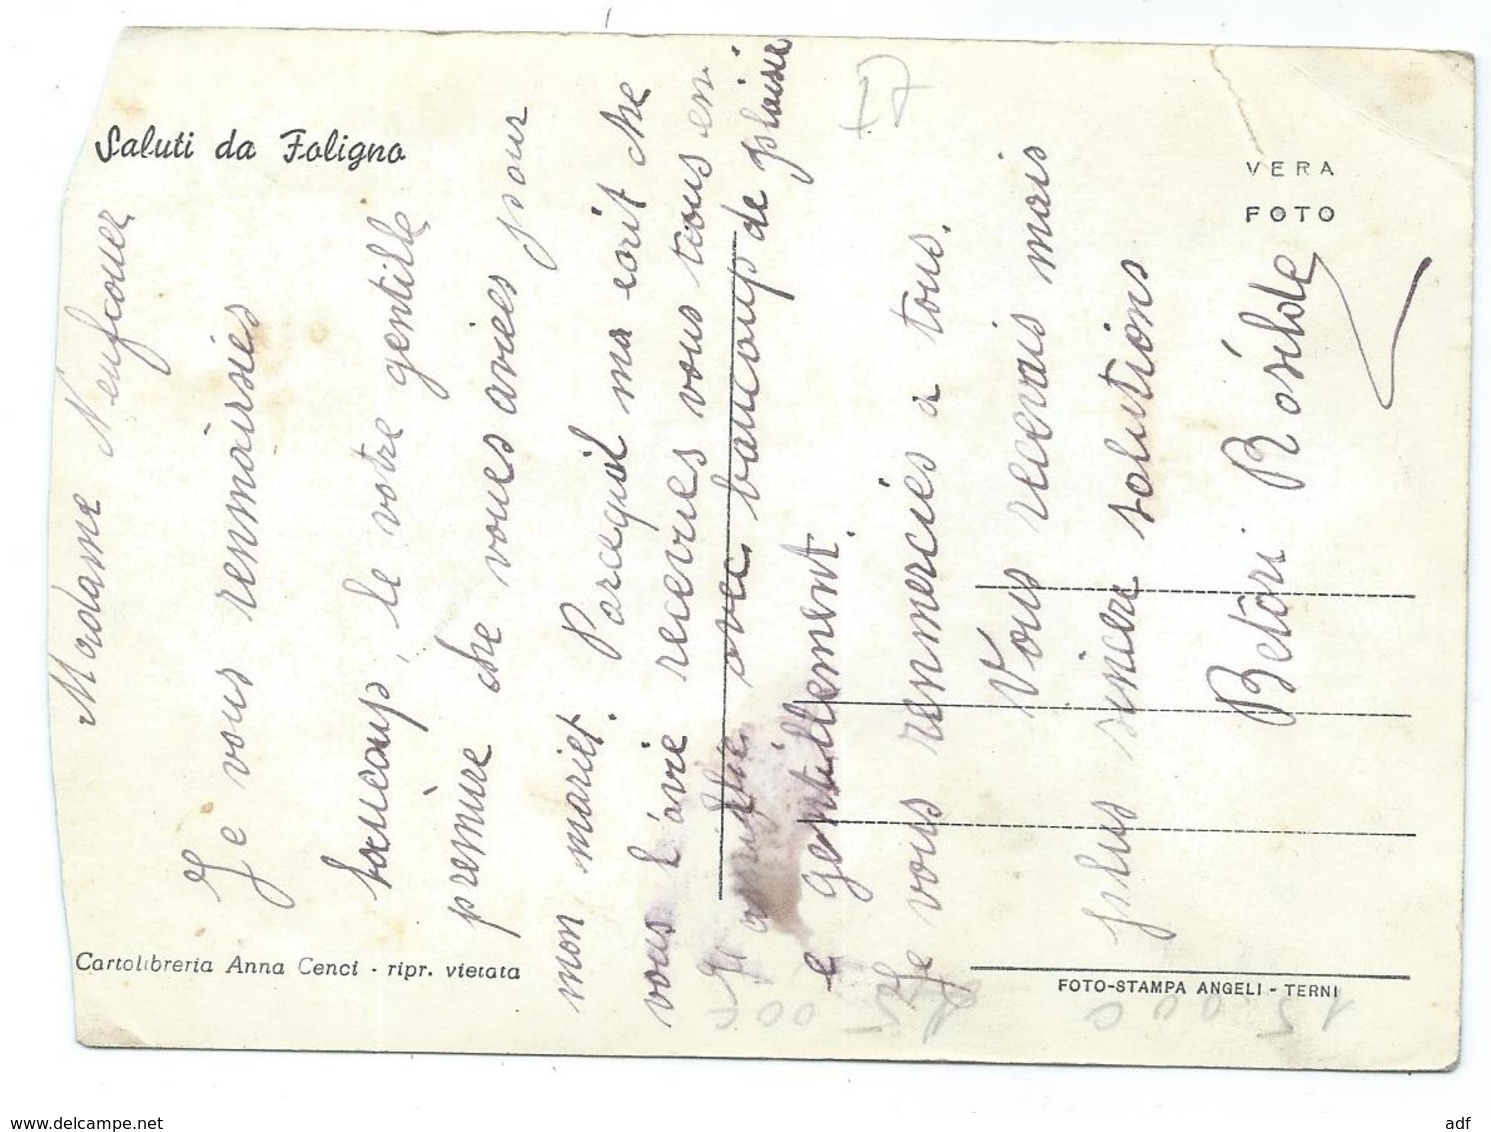 Saluti da Foligno
VERA
FOTO
Madame Neufcouer
Je vous remmairsies
baucoup, le votre gentille
premiùre che voues aviees pour
mon mariet. Parcequil ma ecrit che
vous l'avie recevies vous tious en
famiglie avec baucoup de plaisir
e gentillement.
Je vous remmerciés a tous.
Vous recevais mais
plus sincere salutions
Betori Rósilde
Cartolibreria Anna Cenci - ripr. vietata
FOTO-STAMPA ANGELI - TERNI
I7
15.00€
www.delcampe.net
adf